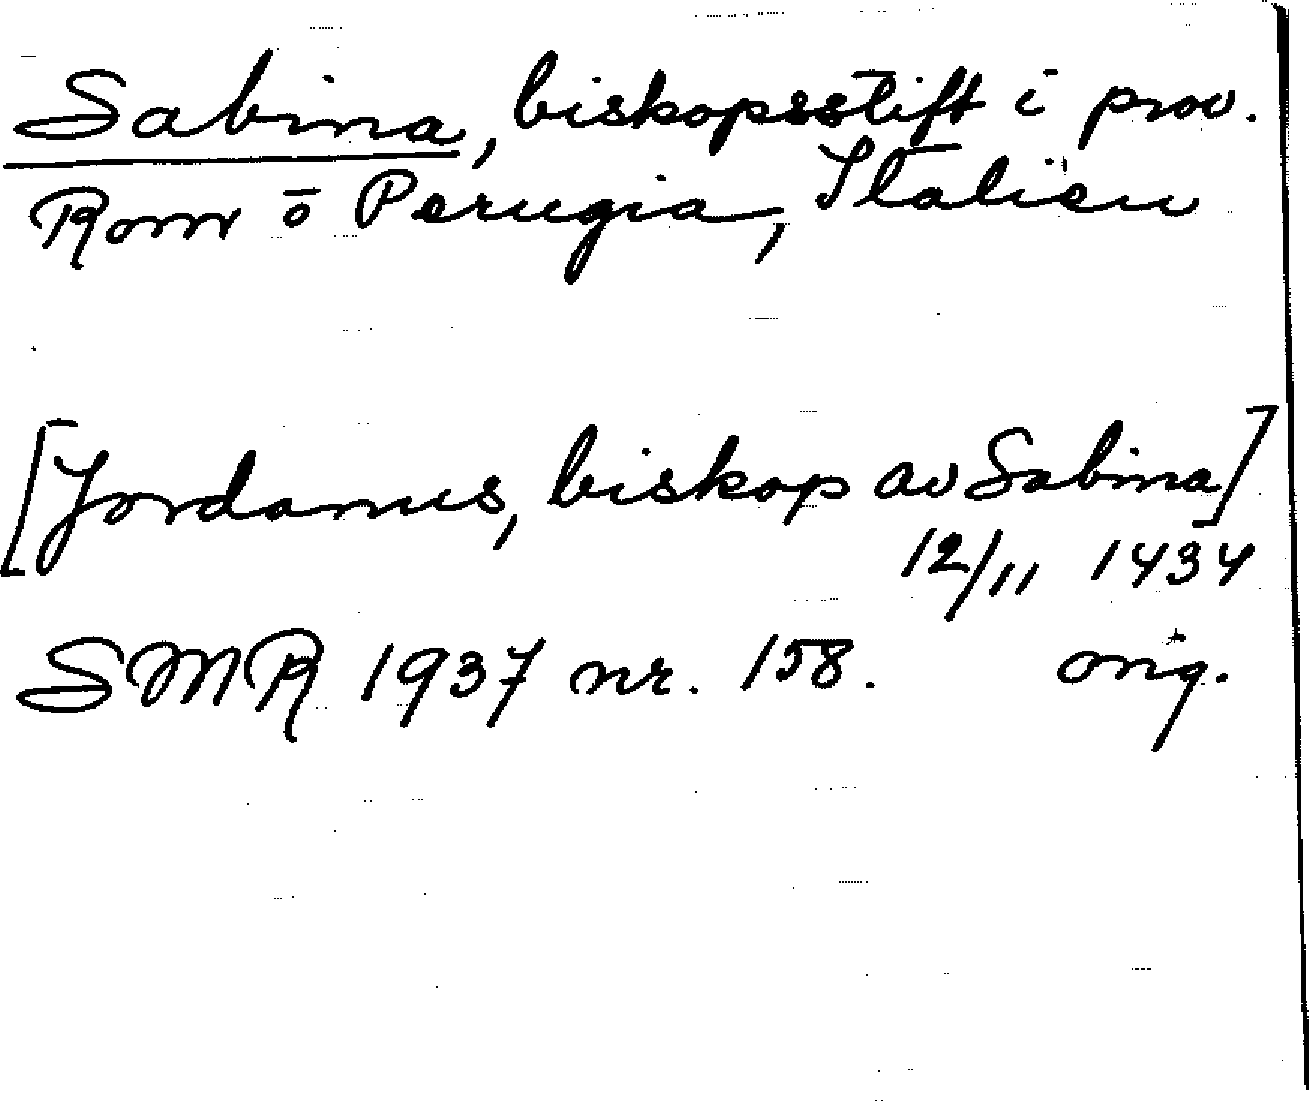 Sabina, biskopsstift i prov.
Rom ō Perugia, Italien
[Jordanus, biskop av Sabina]
12/11 1434
SMR 1937 nr. 158. orig.